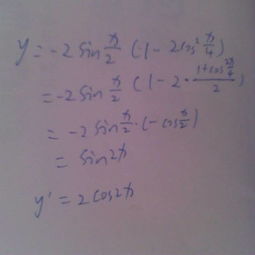 y = -2 sin x/2 (1 - 2cos² x/4)
= -2 sin x/2 (1 - 2 · (1 + cos 2x/4)/2)
= -2 sin x/2 · (-cos x/2)
= sin 2x
y' = 2 cos 2x